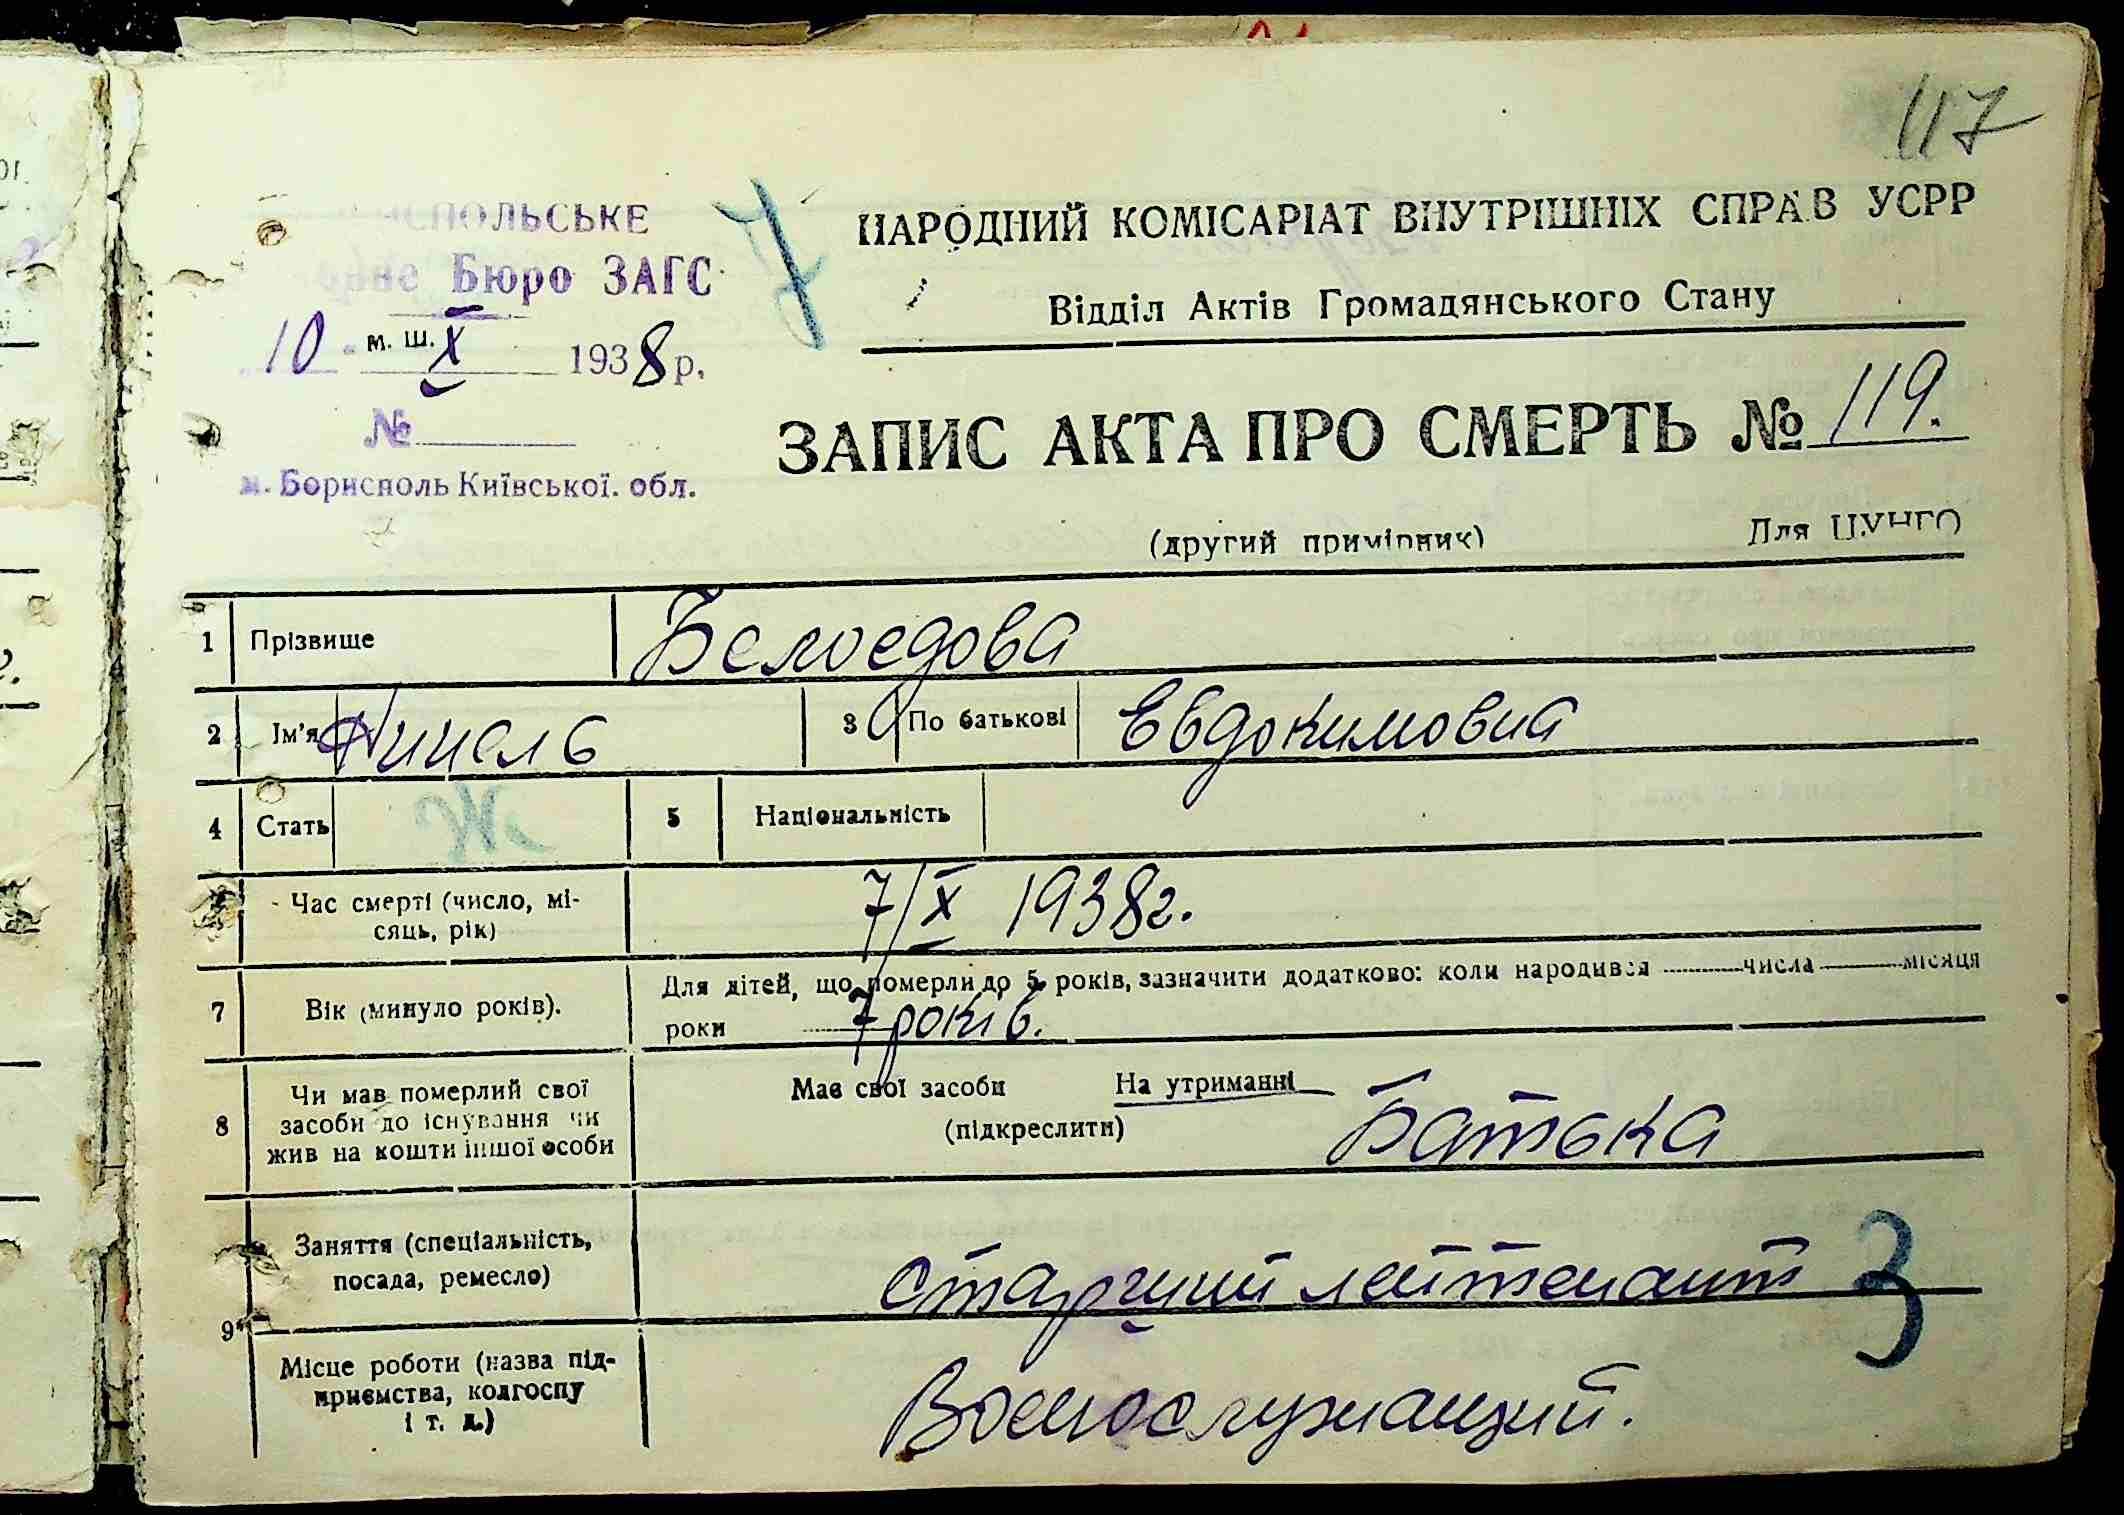 117
СПОЛЬСЬКЕ
Бюро ЗАГС
10 м. ш. X 1938 р.
№
м. Бориспіль Київської. обл.
7
НАРОДНИЙ КОМІСАРІАТ ВНУТРІШНІХ СПРАВ УСРР
Відділ Актів Громадянського Стану
ЗАПИС АКТА ПРО СМЕРТЬ № 119.
(другий примірник)
Для ЦУНГО
1 Прізвище Белоедова
2 Ім'я Нинель 3 По батькові Евдокимовна
4 Стать Ж 5 Національність
Час смерті (число, мі-
сяць, рік) 7/X 1938г.
7 Вік (минуло років). Для дітей, що померли до 5 років, зазначити додатково: коли народився числа місяця
роки 7 років.
8 Чи мав померлий свої
засоби до існування чи
жив на кошти іншої особи
Має свої засоби На утриманні
(підкреслити) Батька
9 Заняття (спеціальність,
посада, ремесло) старший лейтенант
3
Місце роботи (назва під-
приємства, колгоспу
і т. д.) Военослужащий.